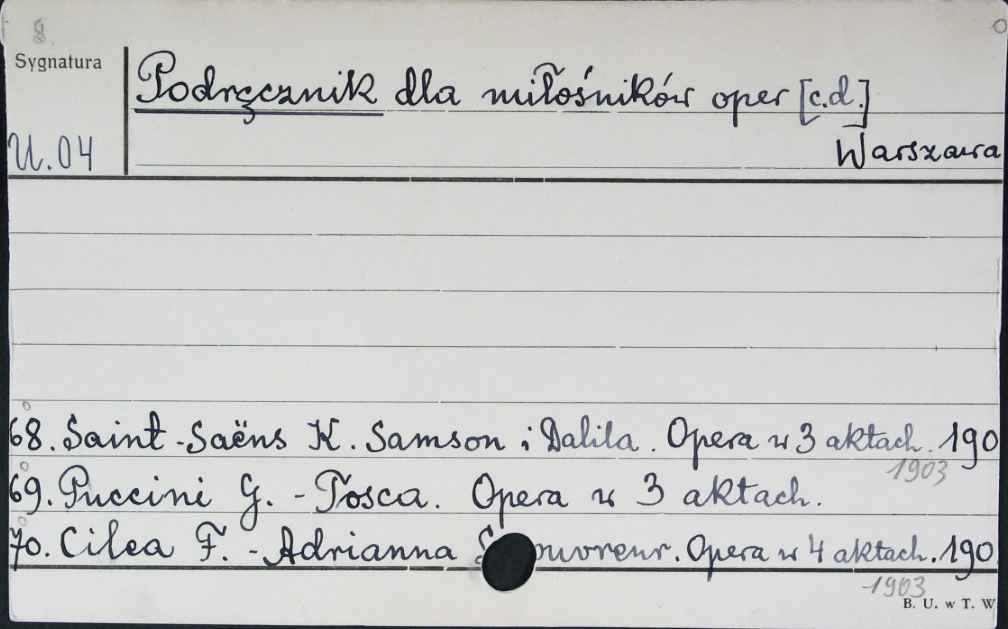 8
Sygnatura
Podręcznik dla miłośników oper [c.d.]
U.04
Warszawa
68. Saint-Saëns K. Samson i Dalila. Opera w 3 aktach. 190
1903
69. Puccini G. - Tosca. Opera w 3 aktach.
70. Cilea F. - Adrianna Opera w 4 aktach. 190
1903
B. U. w T. W